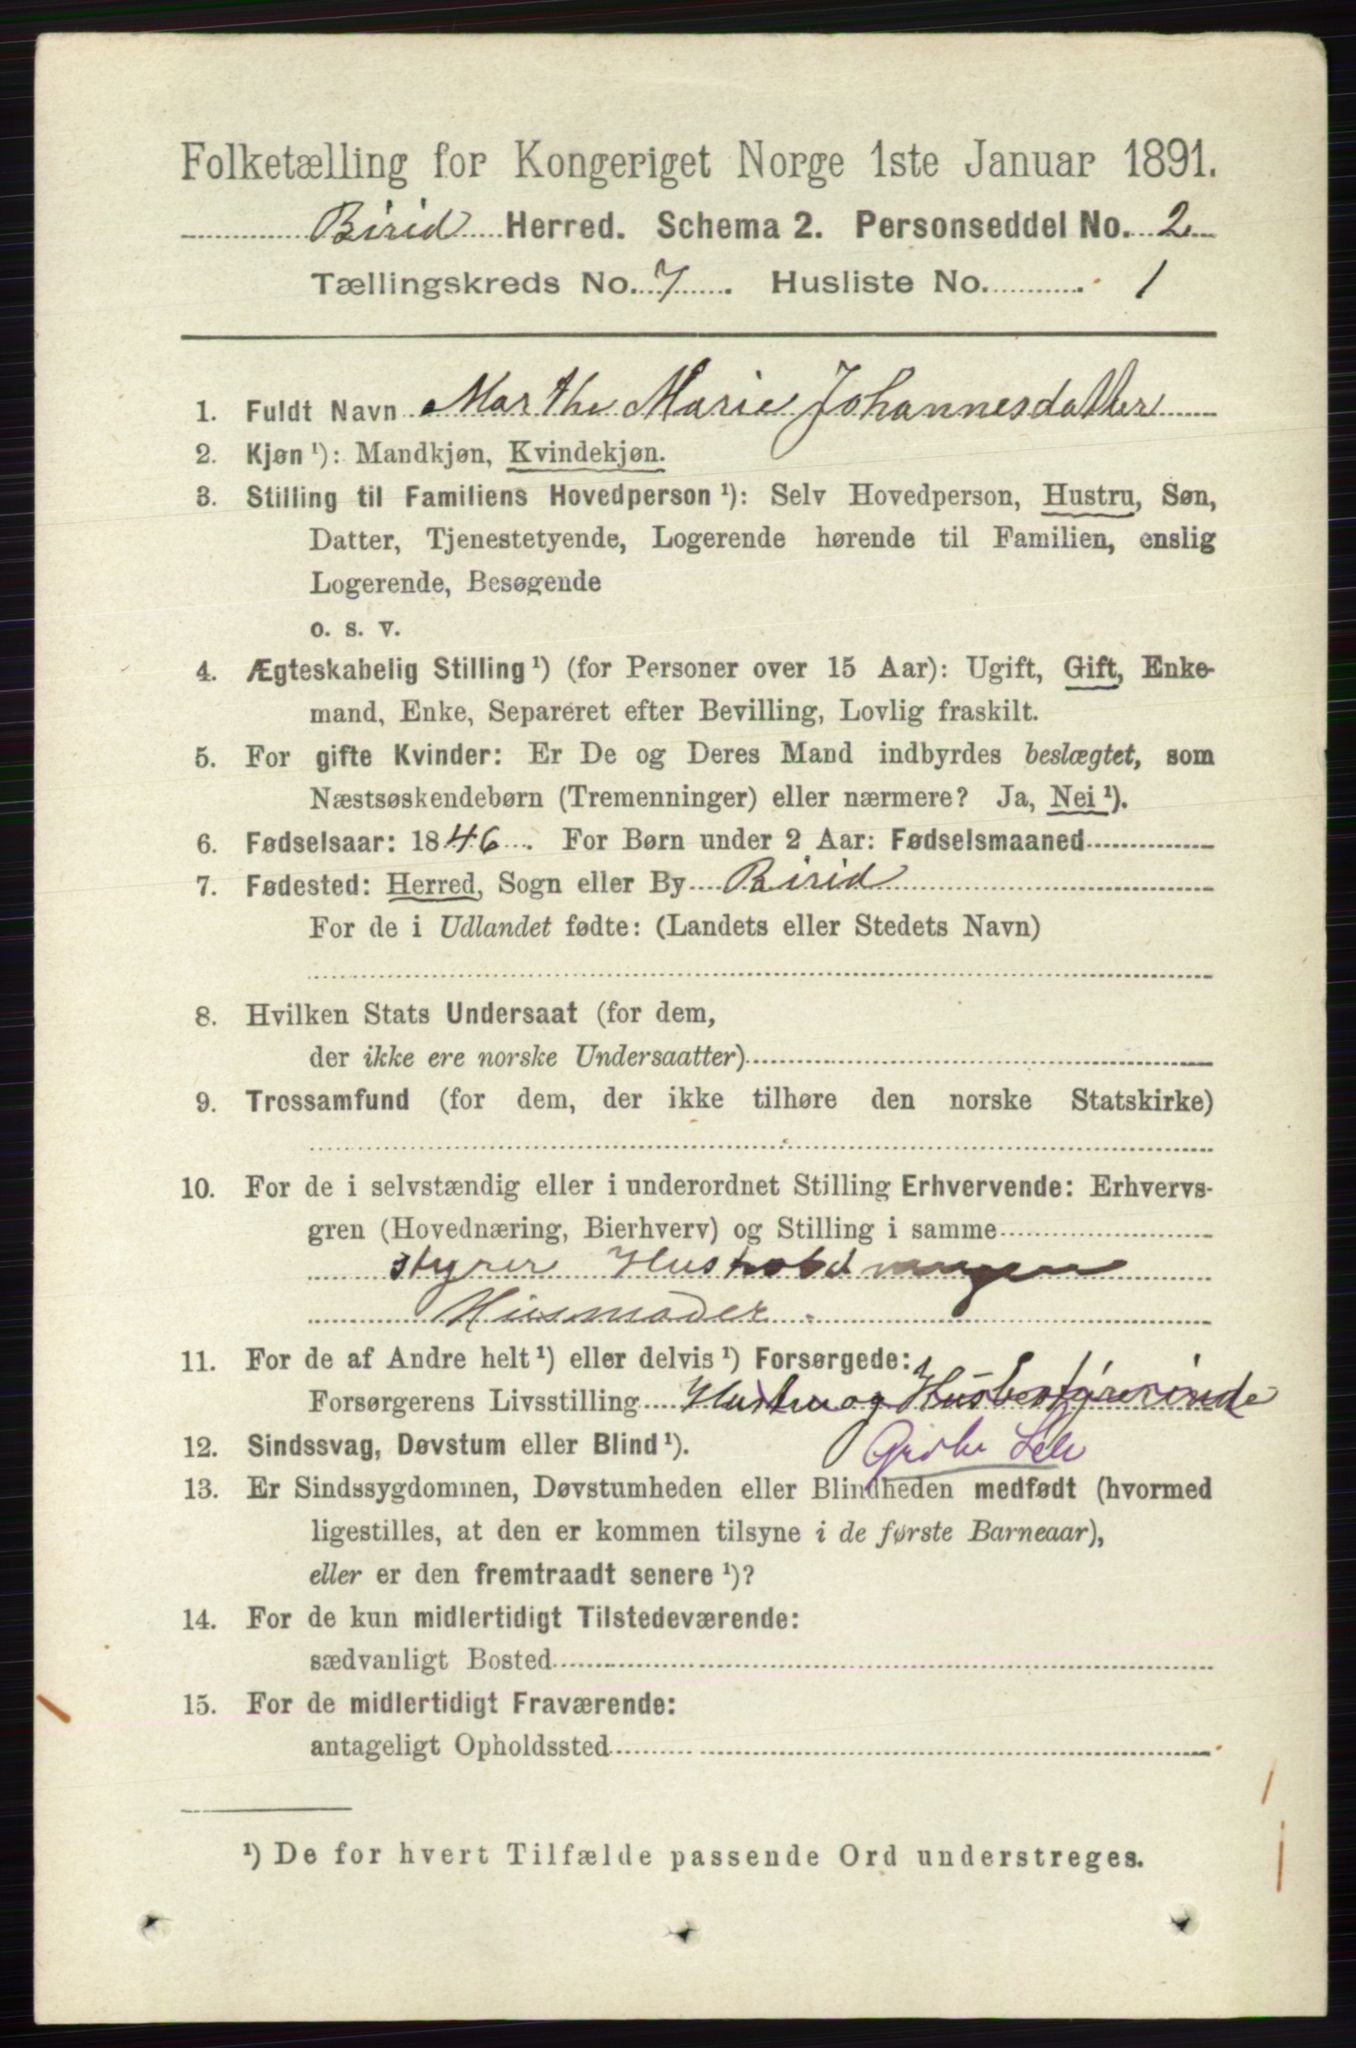 Folketælling for Kongeriget Norge 1ste Januar 1891.
Birid Herred. Schema 2. Personseddel No. 2
Tællingskreds No. 7. Husliste No. 1
1. Fuldt Navn Marthe Marie Johannesdatter
2. Kjøn ¹): Mandkjøn, Kvindekjøn.
3. Stilling til Familiens Hovedperson ¹): Selv Hovedperson, Hustru, Søn,
Datter, Tjenestetyende, Logerende hørende til Familien, enslig
Logerende, Besøgende
o. s. v.
4. Ægteskabelig Stilling ¹) (for Personer over 15 Aar): Ugift, Gift, Enke-
mand, Enke, Separeret efter Bevilling, Lovlig fraskilt.
5. For gifte Kvinder: Er De og Deres Mand indbyrdes beslægtet, som
Næstsøskendebørn (Tremenninger) eller nærmere? Ja, Nei ¹).
6. Fødselsaar: 1846. For Børn under 2 Aar: Fødselsmaaned
7. Fødested: Herred, Sogn eller By Birid
For de i Udlandet fødte: (Landets eller Stedets Navn)
8. Hvilken Stats Undersaat (for dem,
der ikke ere norske Undersaatter)
9. Trossamfund (for dem, der ikke tilhøre den norske Statskirke)
10. For de i selvstændig eller i underordnet Stilling Erhvervende: Erhvervs-
gren (Hovednæring, Bierhverv) og Stilling i samme
styrer Hushold
Husmoder.
11. For de af Andre helt ¹) eller delvis ¹) Forsørgede:
Forsørgerens Livsstilling Hustru og Husbestyrerinde
12. Sindssvag, Døvstum eller Blind ¹).
13. Er Sindssygdommen, Døvstumheden eller Blindheden medfødt (hvormed
ligestilles, at den er kommen tilsyne i de første Barneaar),
eller er den fremtraadt senere ¹)?
14. For de kun midlertidigt Tilstedeværende:
sædvanligt Bosted
15. For de midlertidigt Fraværende:
antageligt Opholdssted
¹) De for hvert Tilfælde passende Ord understreges.